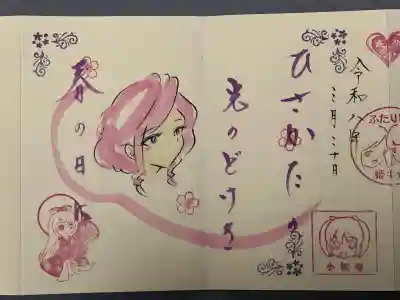 令和八年
三月二十日
ひさかたの
光のどけき
春の日に
ふたり
小町